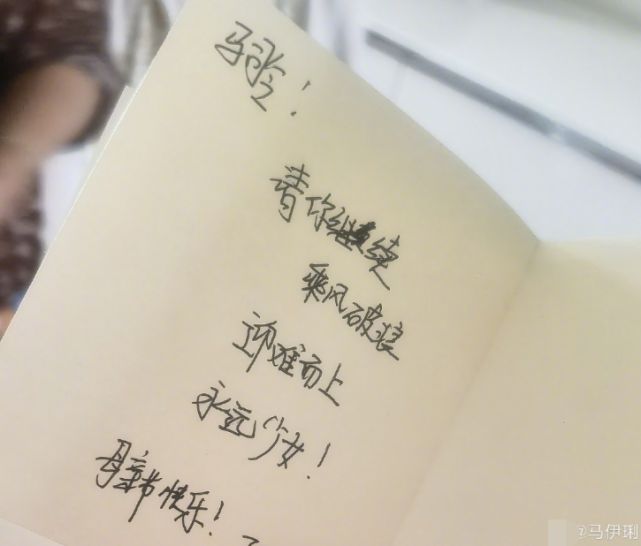 马司令！
请你继续
乘风破浪
迎难而上
永远少女！
母童节快乐！
@马伊琍